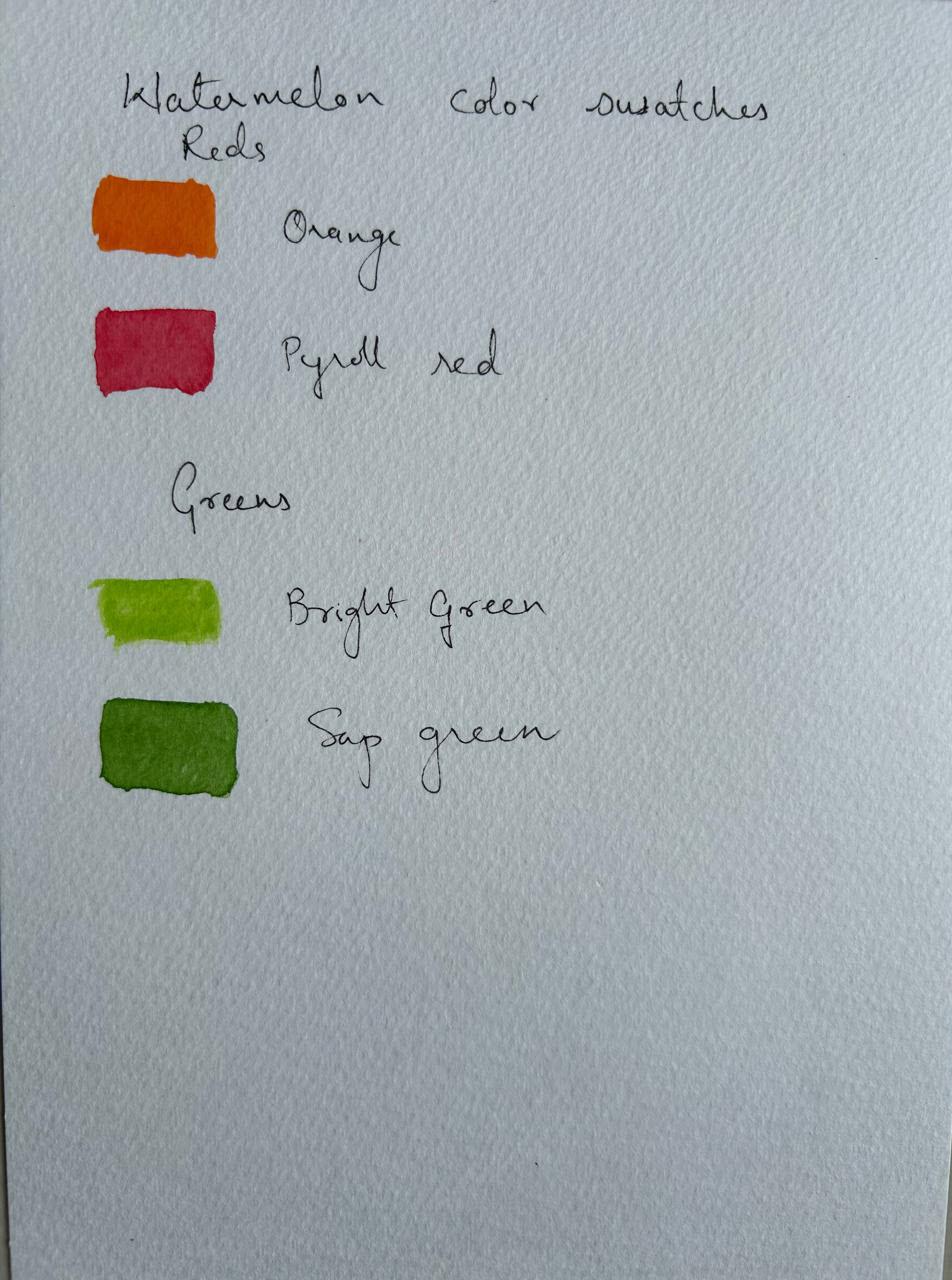 Watermelon color swatches
Reds
Orange
Pyroll red
Greens
Bright Green
Sap green